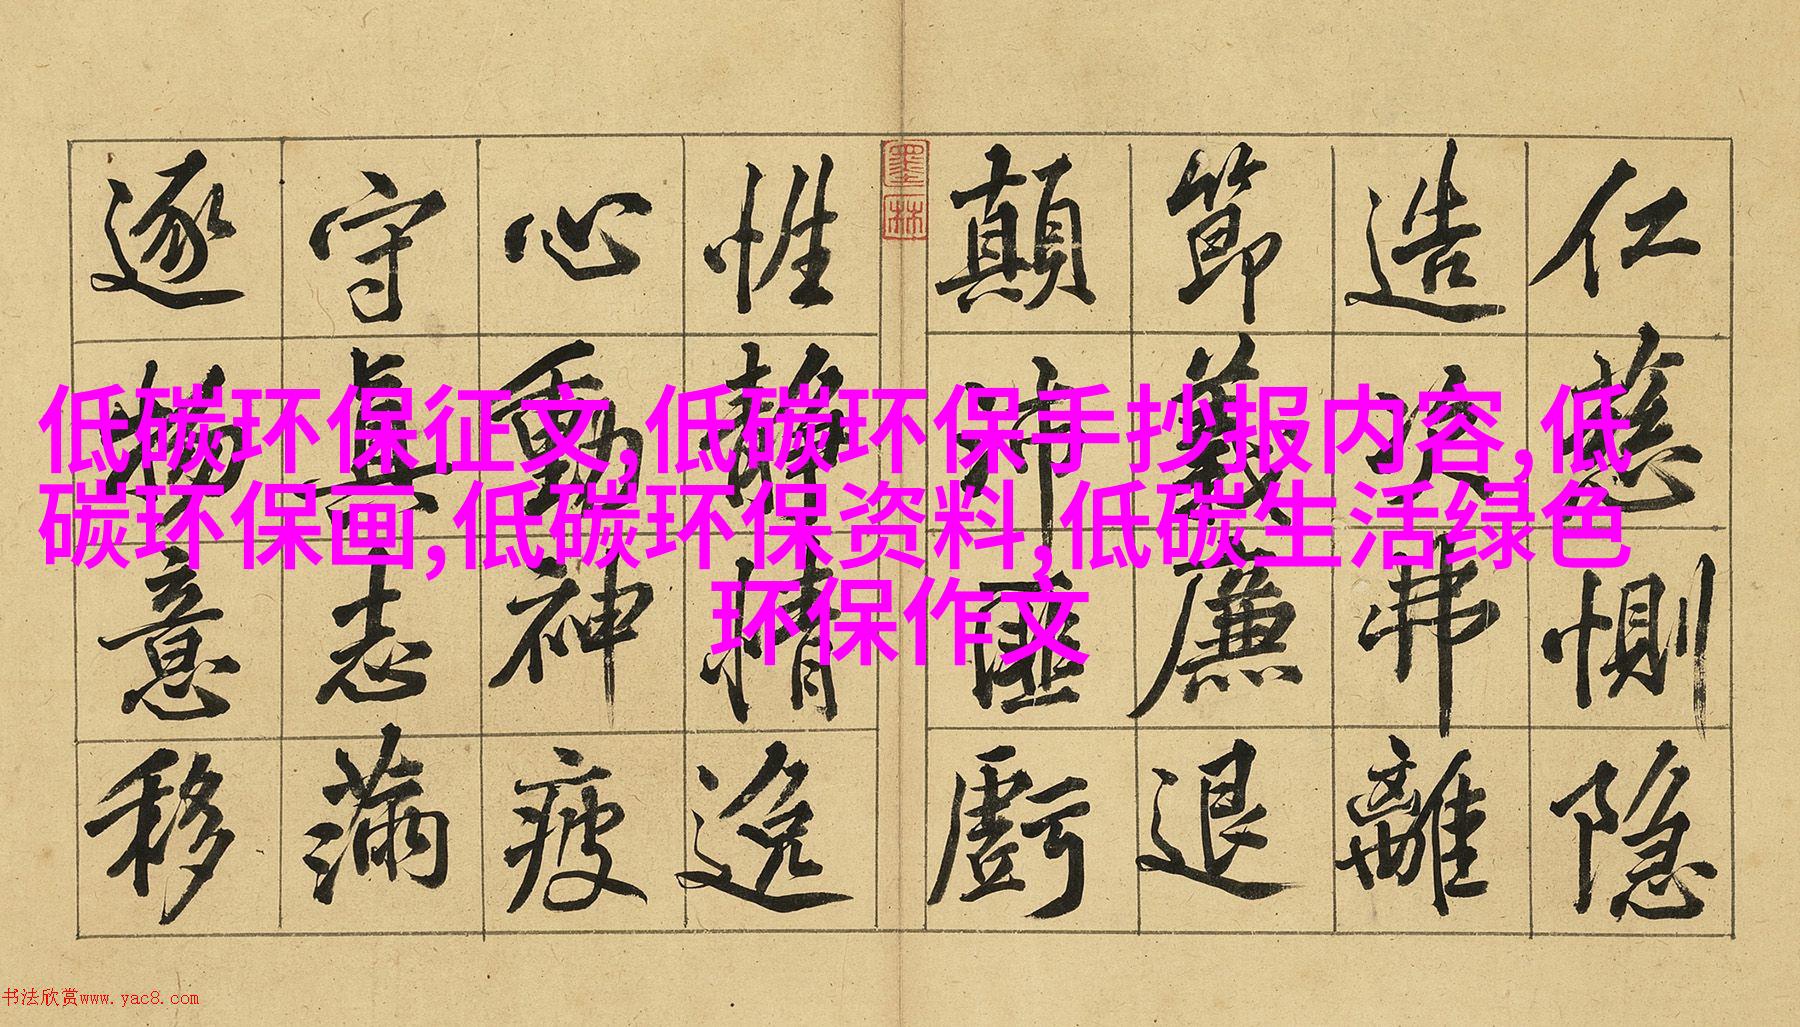 仁慈惻隐
造次弗離
節義廉退
顛沛匪虧
墨林
性靜情逸
心動神疲
守真志滿
逐物意移
低碳环保征文,低碳环保手抄报内容,低
碳环保画,低碳环保资料,低碳生活绿色
环保作文
书法欣赏www.yac8.com